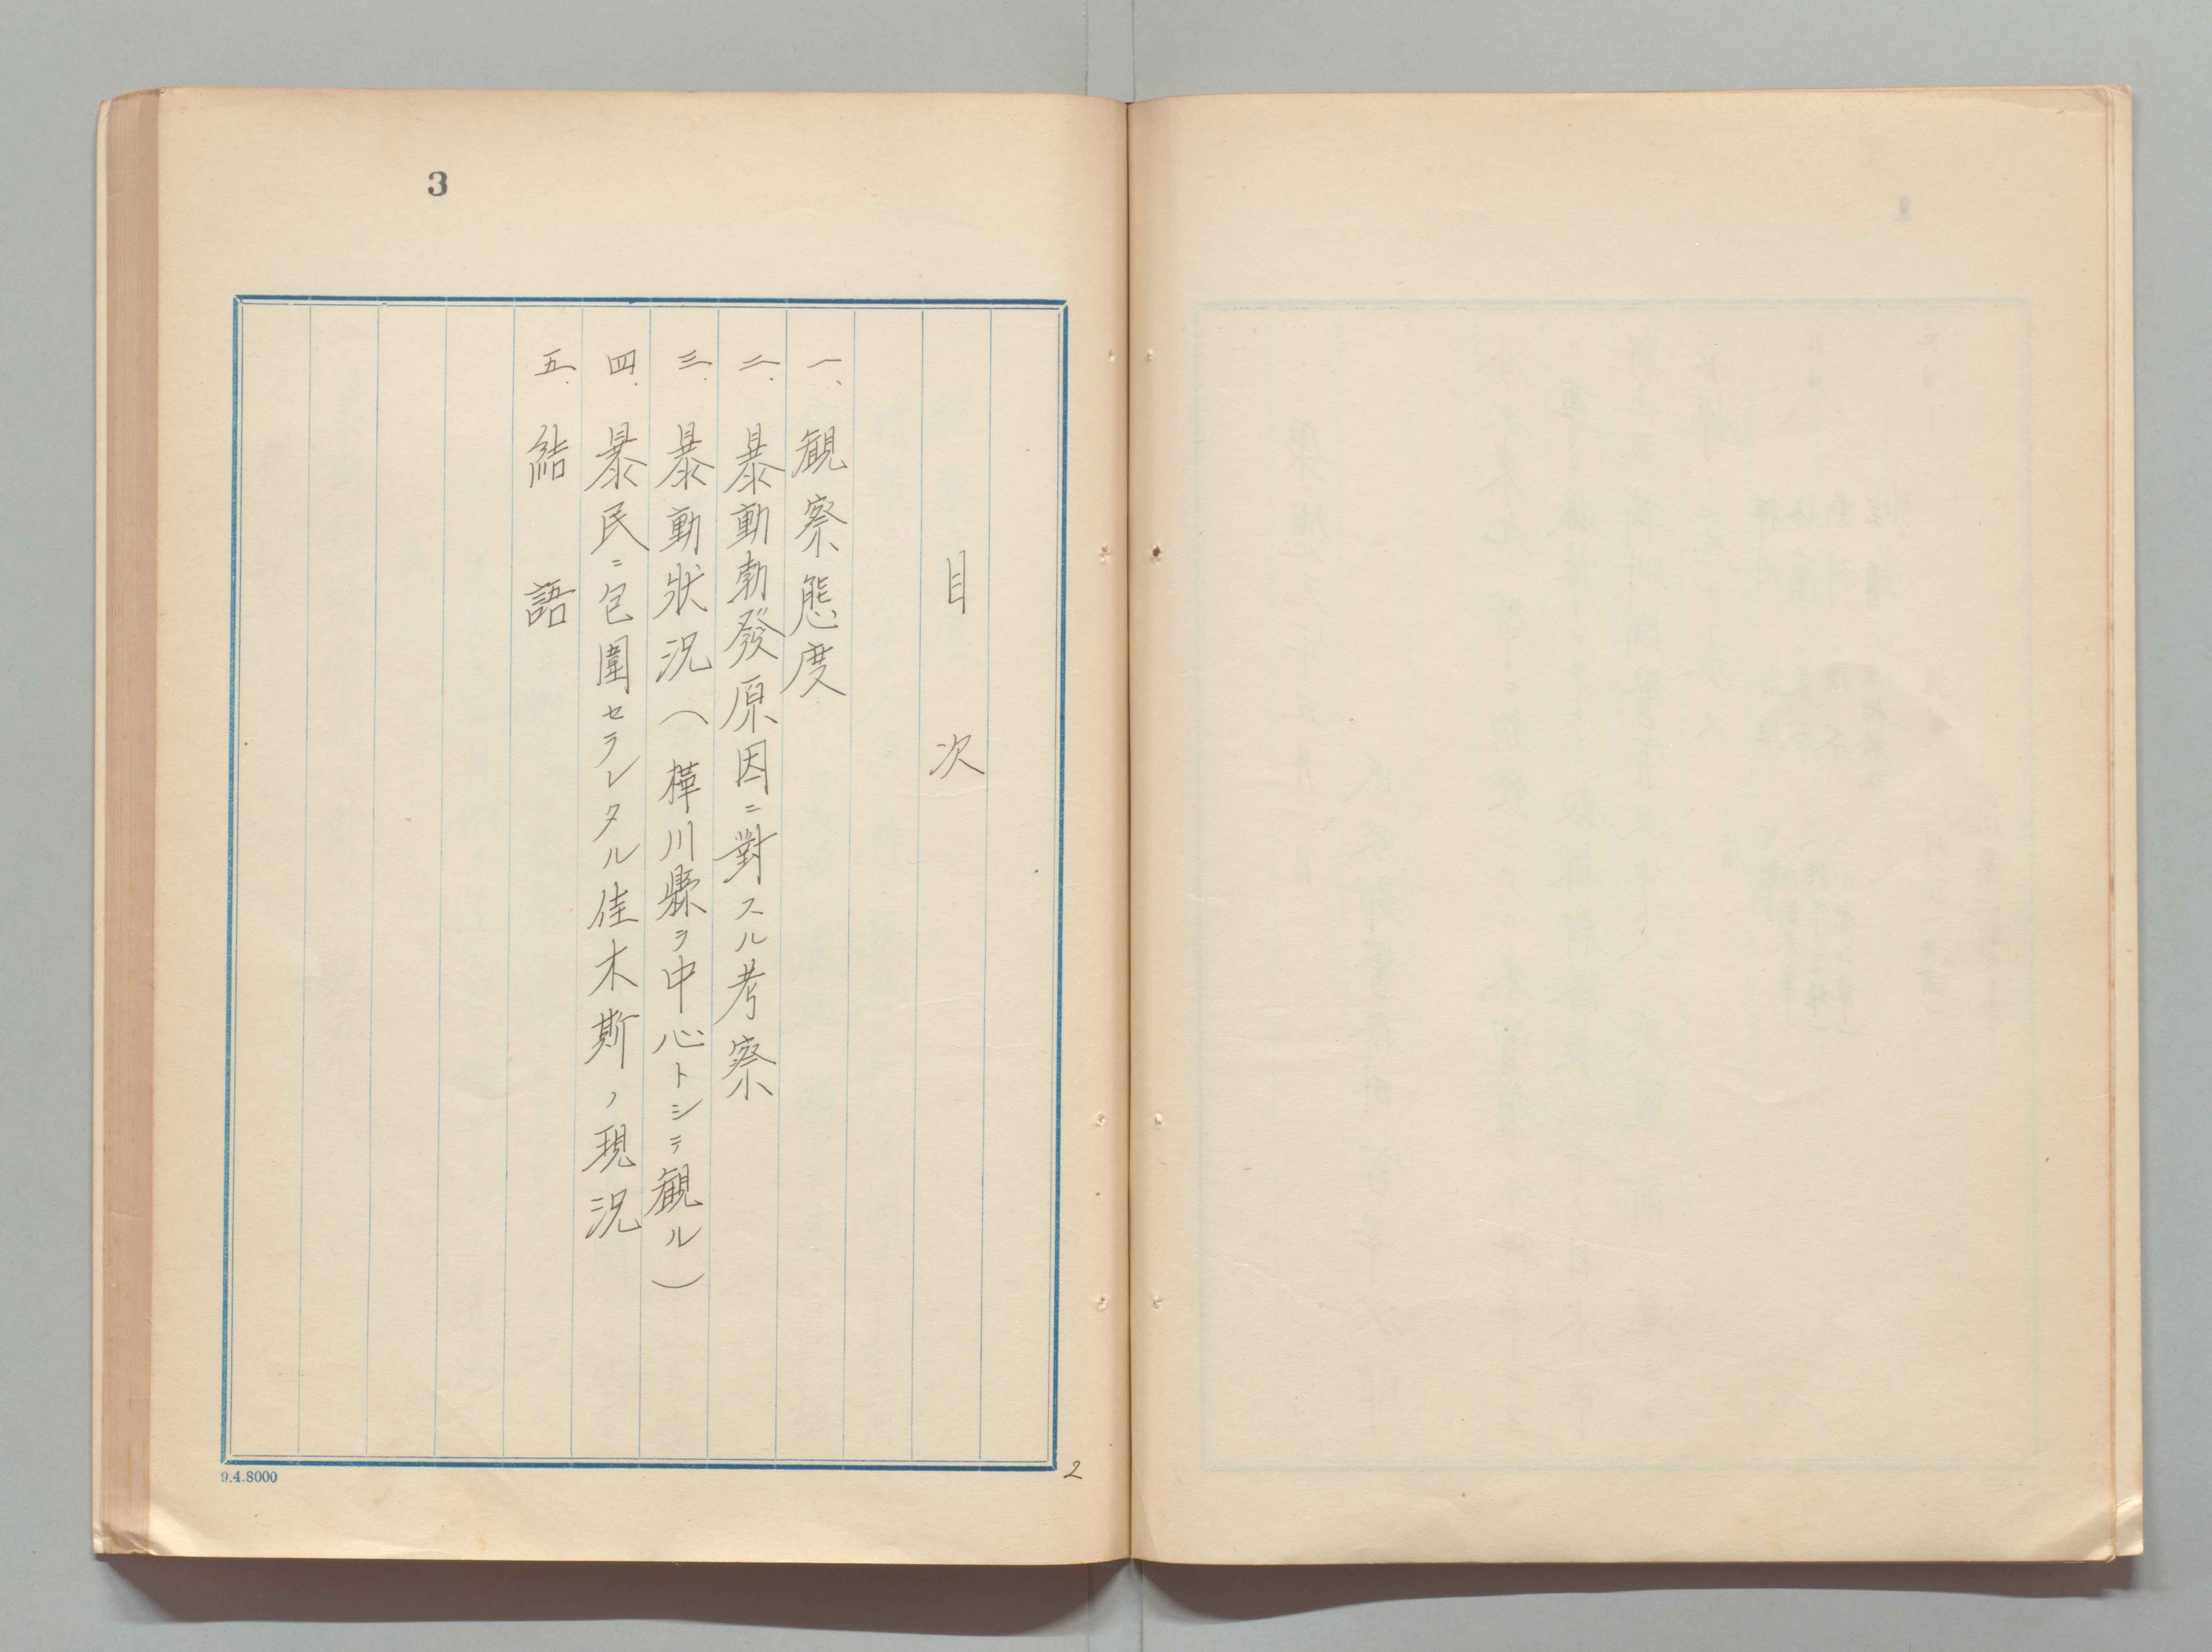 3
目次
一、観察態度
二、暴動勃發原因ニ對スル考察
三、暴動狀況(樺川縣ヲ中心トシテ観ル)
四、暴民ニ包圍セラレタル佳木斯ノ現況
五、結語
9.4.8000
2